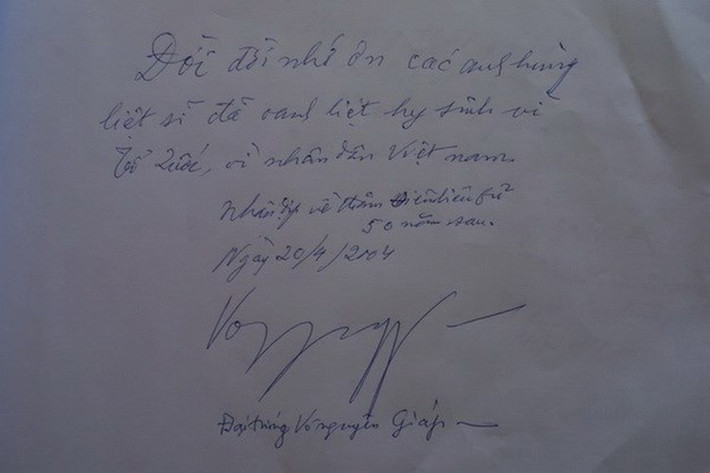 Đời đời nhớ ơn các anh hùng
liệt sĩ đã oanh liệt hy sinh vì
Tổ Quốc, vì nhân dân Việt nam.
Nhân dịp về thăm Điện biên phủ
50 năm sau.
Ngày 20/4/2004
Võ
Đại tướng Võ nguyên Giáp